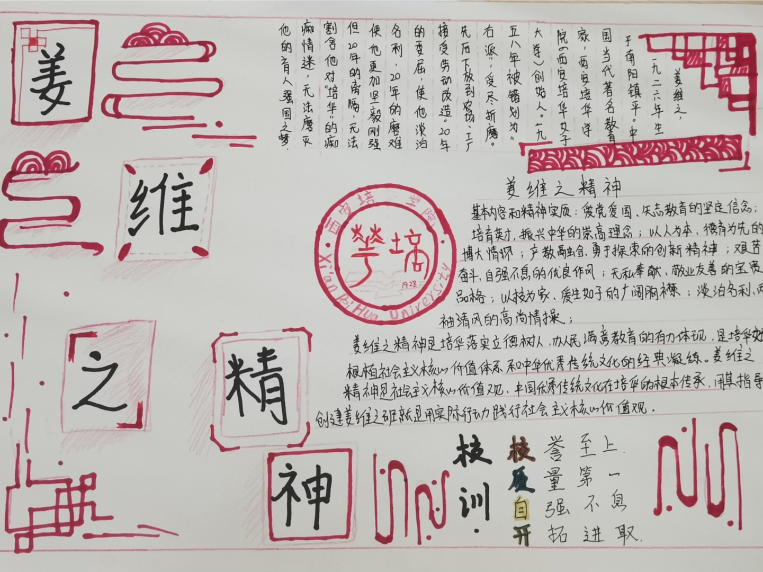 姜
维
之
精
神
姜维之，
一九二六年生
于南阳镇平。中
国当代著名教育
家，西安培华学
院（西安培华女子
大学）创始人。一九
五八年被错划为"
右派"，受尽折磨。
先后下放到农场、工厂
接受劳动改造。20年
的委屈，使他淡泊
名利，20年的磨难
使他更加坚毅刚强
但20年的离隔，无法
割舍他对"培华"的痴
痴情迷，无法磨灭
他的育人强国之梦。
西安培
学院
培華
1928
Xi'an PeiHua University
姜维之精神
基本内容和精神实质：爱党爱国、矢志教育的坚定信念；
培育英才，振兴中华的崇高理念；以人为本，德育为先的
博大情怀；产教融合，勇于探索的创新精神；艰苦
奋斗，自强不息的优良作风；无私奉献，敬业友善的宝贵
品格；以校为家，爱生如子的广阔胸襟；淡泊名利，两
袖清风的高尚情操；
姜维之精神是培华落实立德树人，办人民满意教育的有力体现，是培华
根植社会主义核心价值体系和中华优秀传统文化的经典凝练。姜维之
精神是社会主义核心价值观、中国优秀传统文化在培华的根本传承，用其指导
创建姜维之班就是用实际行动践行社会主义核心价值观。
校训：
校誉至上
质量第一
自强不息
开拓进取